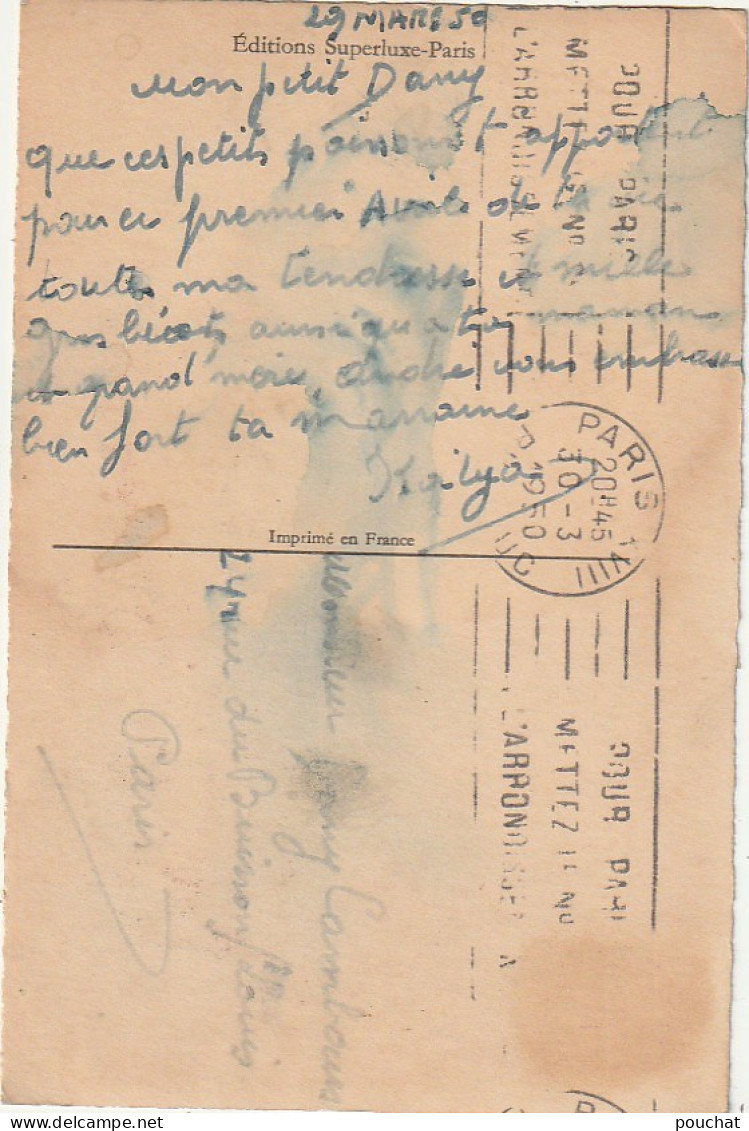 29 MARS 50
Éditions Superluxe-Paris
Mon petit Dany
que ces petits poissons t'apportent
pour ce premier Avril de la vie
toute ma tendresse et mille
gros bécots ainsi qu'a ta maman
et grand'mère, André vous embrasse
bien fort ta marraine
Katya
Imprimé en France
Monsieur Dany Cambours
24 rue du Buisson St Louis
Paris
POUR PARIS
METTEZ LE No
L'ARRONDISSEMENT
PARIS XVIII
20H45
30-3
1950
POUR PARI
METTEZ LE No
L'ARRONDISSEM
delcampe.net
pouchat